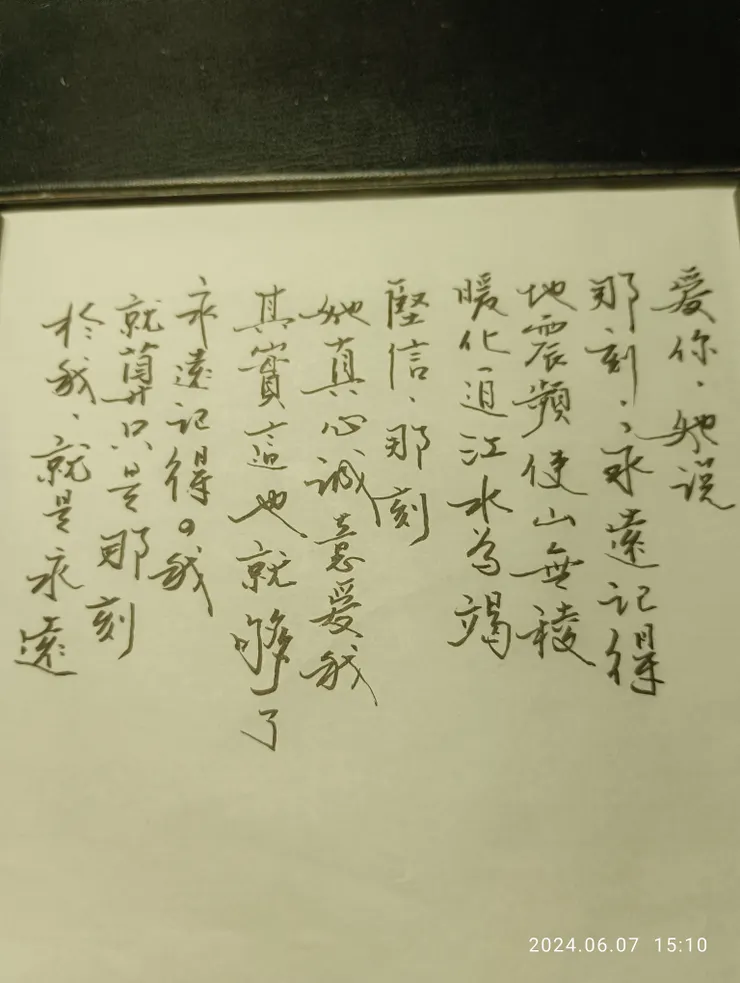 爱你，她说
那刻，永遠记得
地震頻使山無稜
暖化迫江水為竭
堅信，那刻
她真心誠意爱我
其實這也就够了
永遠记得。我
就算只是那刻
於我，就是永遠
2024.06.07 15:10